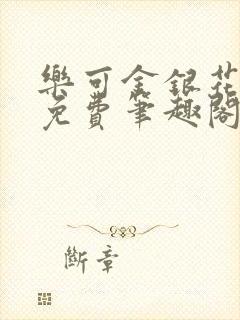 樂可金銀花
免費筆趣閣
斷章